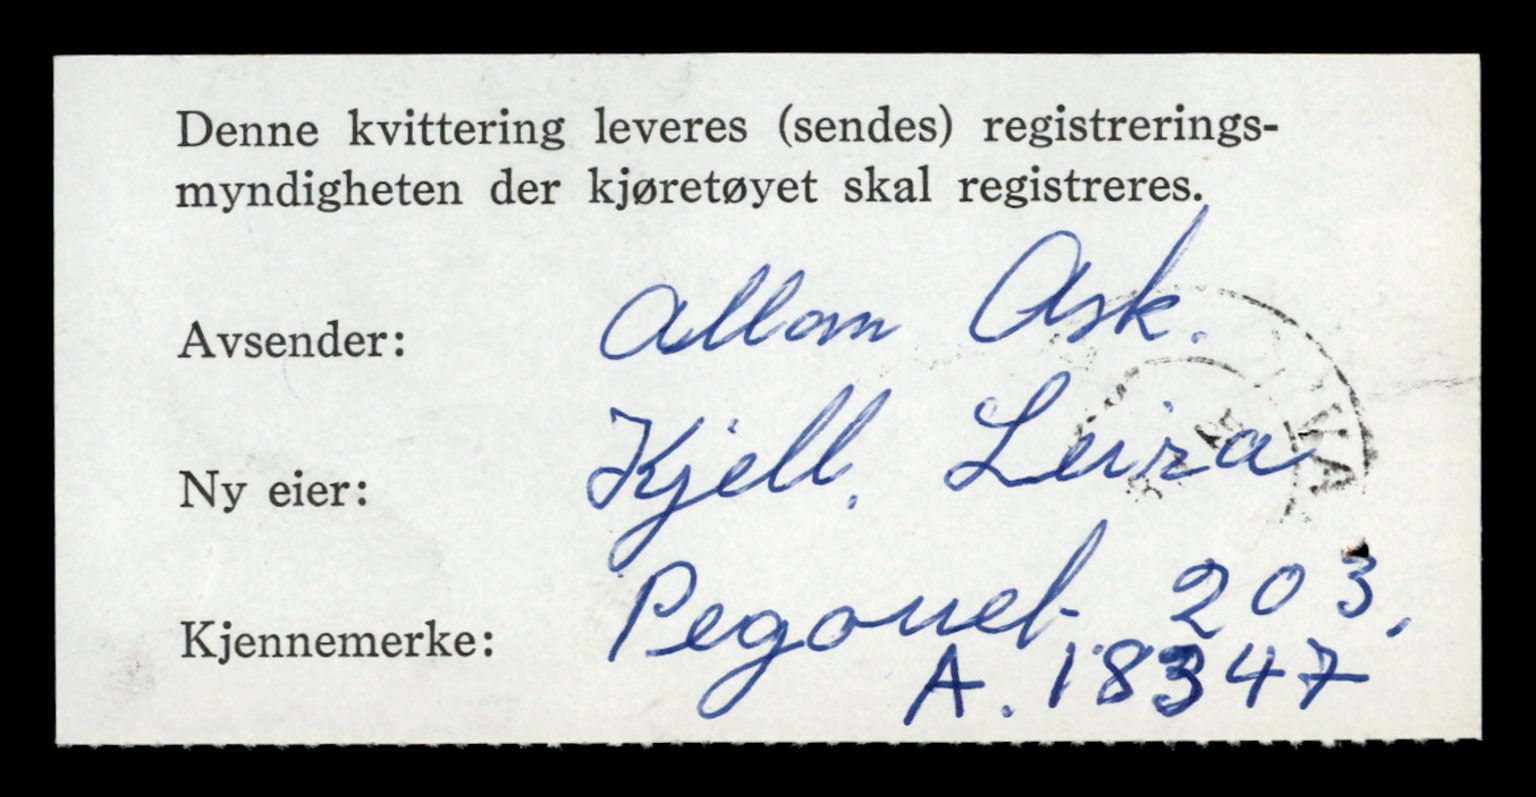 Denne kvittering leveres (sendes) registrerings-
myndigheten der kjøretøyet skal registreres.
Avsender: Allan Ask.
Ny eier: Kjell. Leira
Kjennemerke: Pegouet 203.
A. 18347